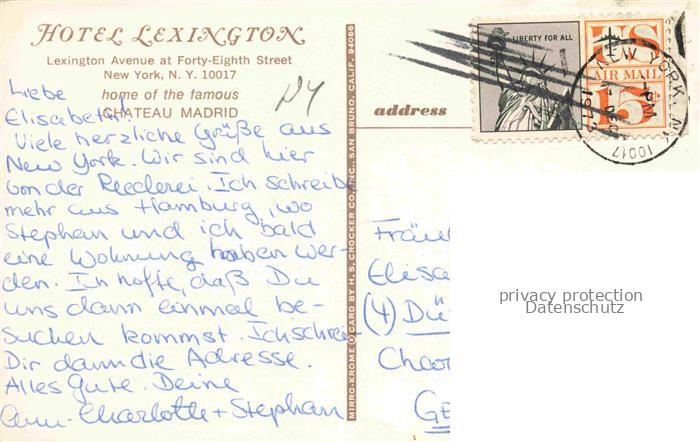 HOTEL LEXINGTON
Lexington Avenue at Forty-Eighth Street
New York, N. Y. 10017
home of the famous
CHATEAU MADRID
NY
Liebe
Elisabeth!
Viele herzliche Grüße aus
New York. Wir sind hier
von der Reederei. Ich schreibe
mehr aus Hamburg, wo
Stephan und ich bald
eine Wohnung haben wer-
den. Ich hoffe, daß Du
uns dann einmal be-
suchen kommst. Ich schreib
Dir dann die Adresse.
Alles Gute. Deine
Ann-Charlotte + Stephan
MIRRO-KROME ® CARD BY H. S. CROCKER CO., INC., SAN BRUNO, CALIF. 94066
address
LIBERTY FOR ALL
US
AIR MAIL
15¢
NEW YORK, N.Y.
PM
DEC
1971
10017
Fräul
Elisa
(4) Dü
Char
GE
privacy protection
Datenschutz